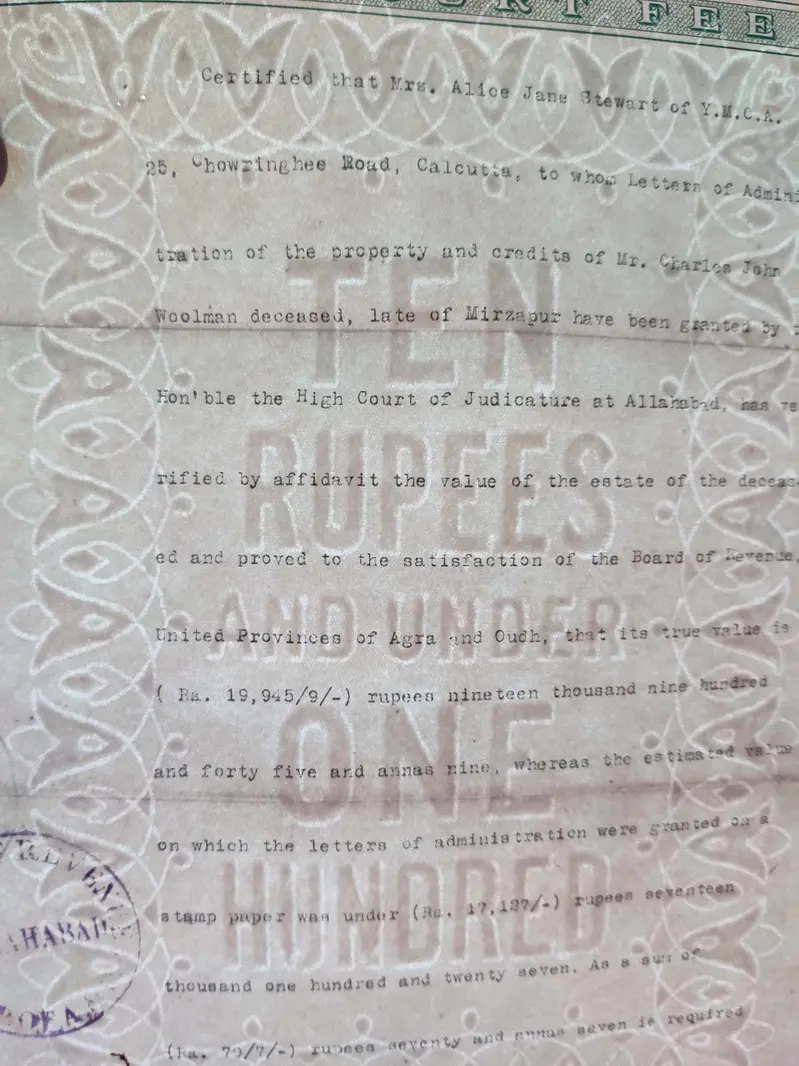 COURT FEE
Certified that Mrs. Alice Jane Stewart of Y.M.C.A.
25, Chowringhee Road, Calcutta, to whom Letters of Admini
tration of the property and credits of Mr. Charles John
Woolman deceased, late of Mirzapur have been granted by
Hon'ble the High Court of Judicature at Allahabad, has ve
rified by affidavit the value of the estate of the deceas-
ed and proved to the satisfaction of the Board of Revenue,
United Provinces of Agra and Oudh, that its true value is
( Rs. 19,945/9/-) rupees nineteen thousand nine hundred
and forty five and annas nine, whereas the estimated value
on which the letters of administration were granted on a
stamp paper was under (Rs. 17,127/-) rupees seventeen
thousand one hundred and twenty seven. As a sum of
(Rs. 70/7/-) rupees seventy and annas seven is required
TEN
RUPEES
AND UNDER
ONE
HUNDRED
REVENUE
AHABAD